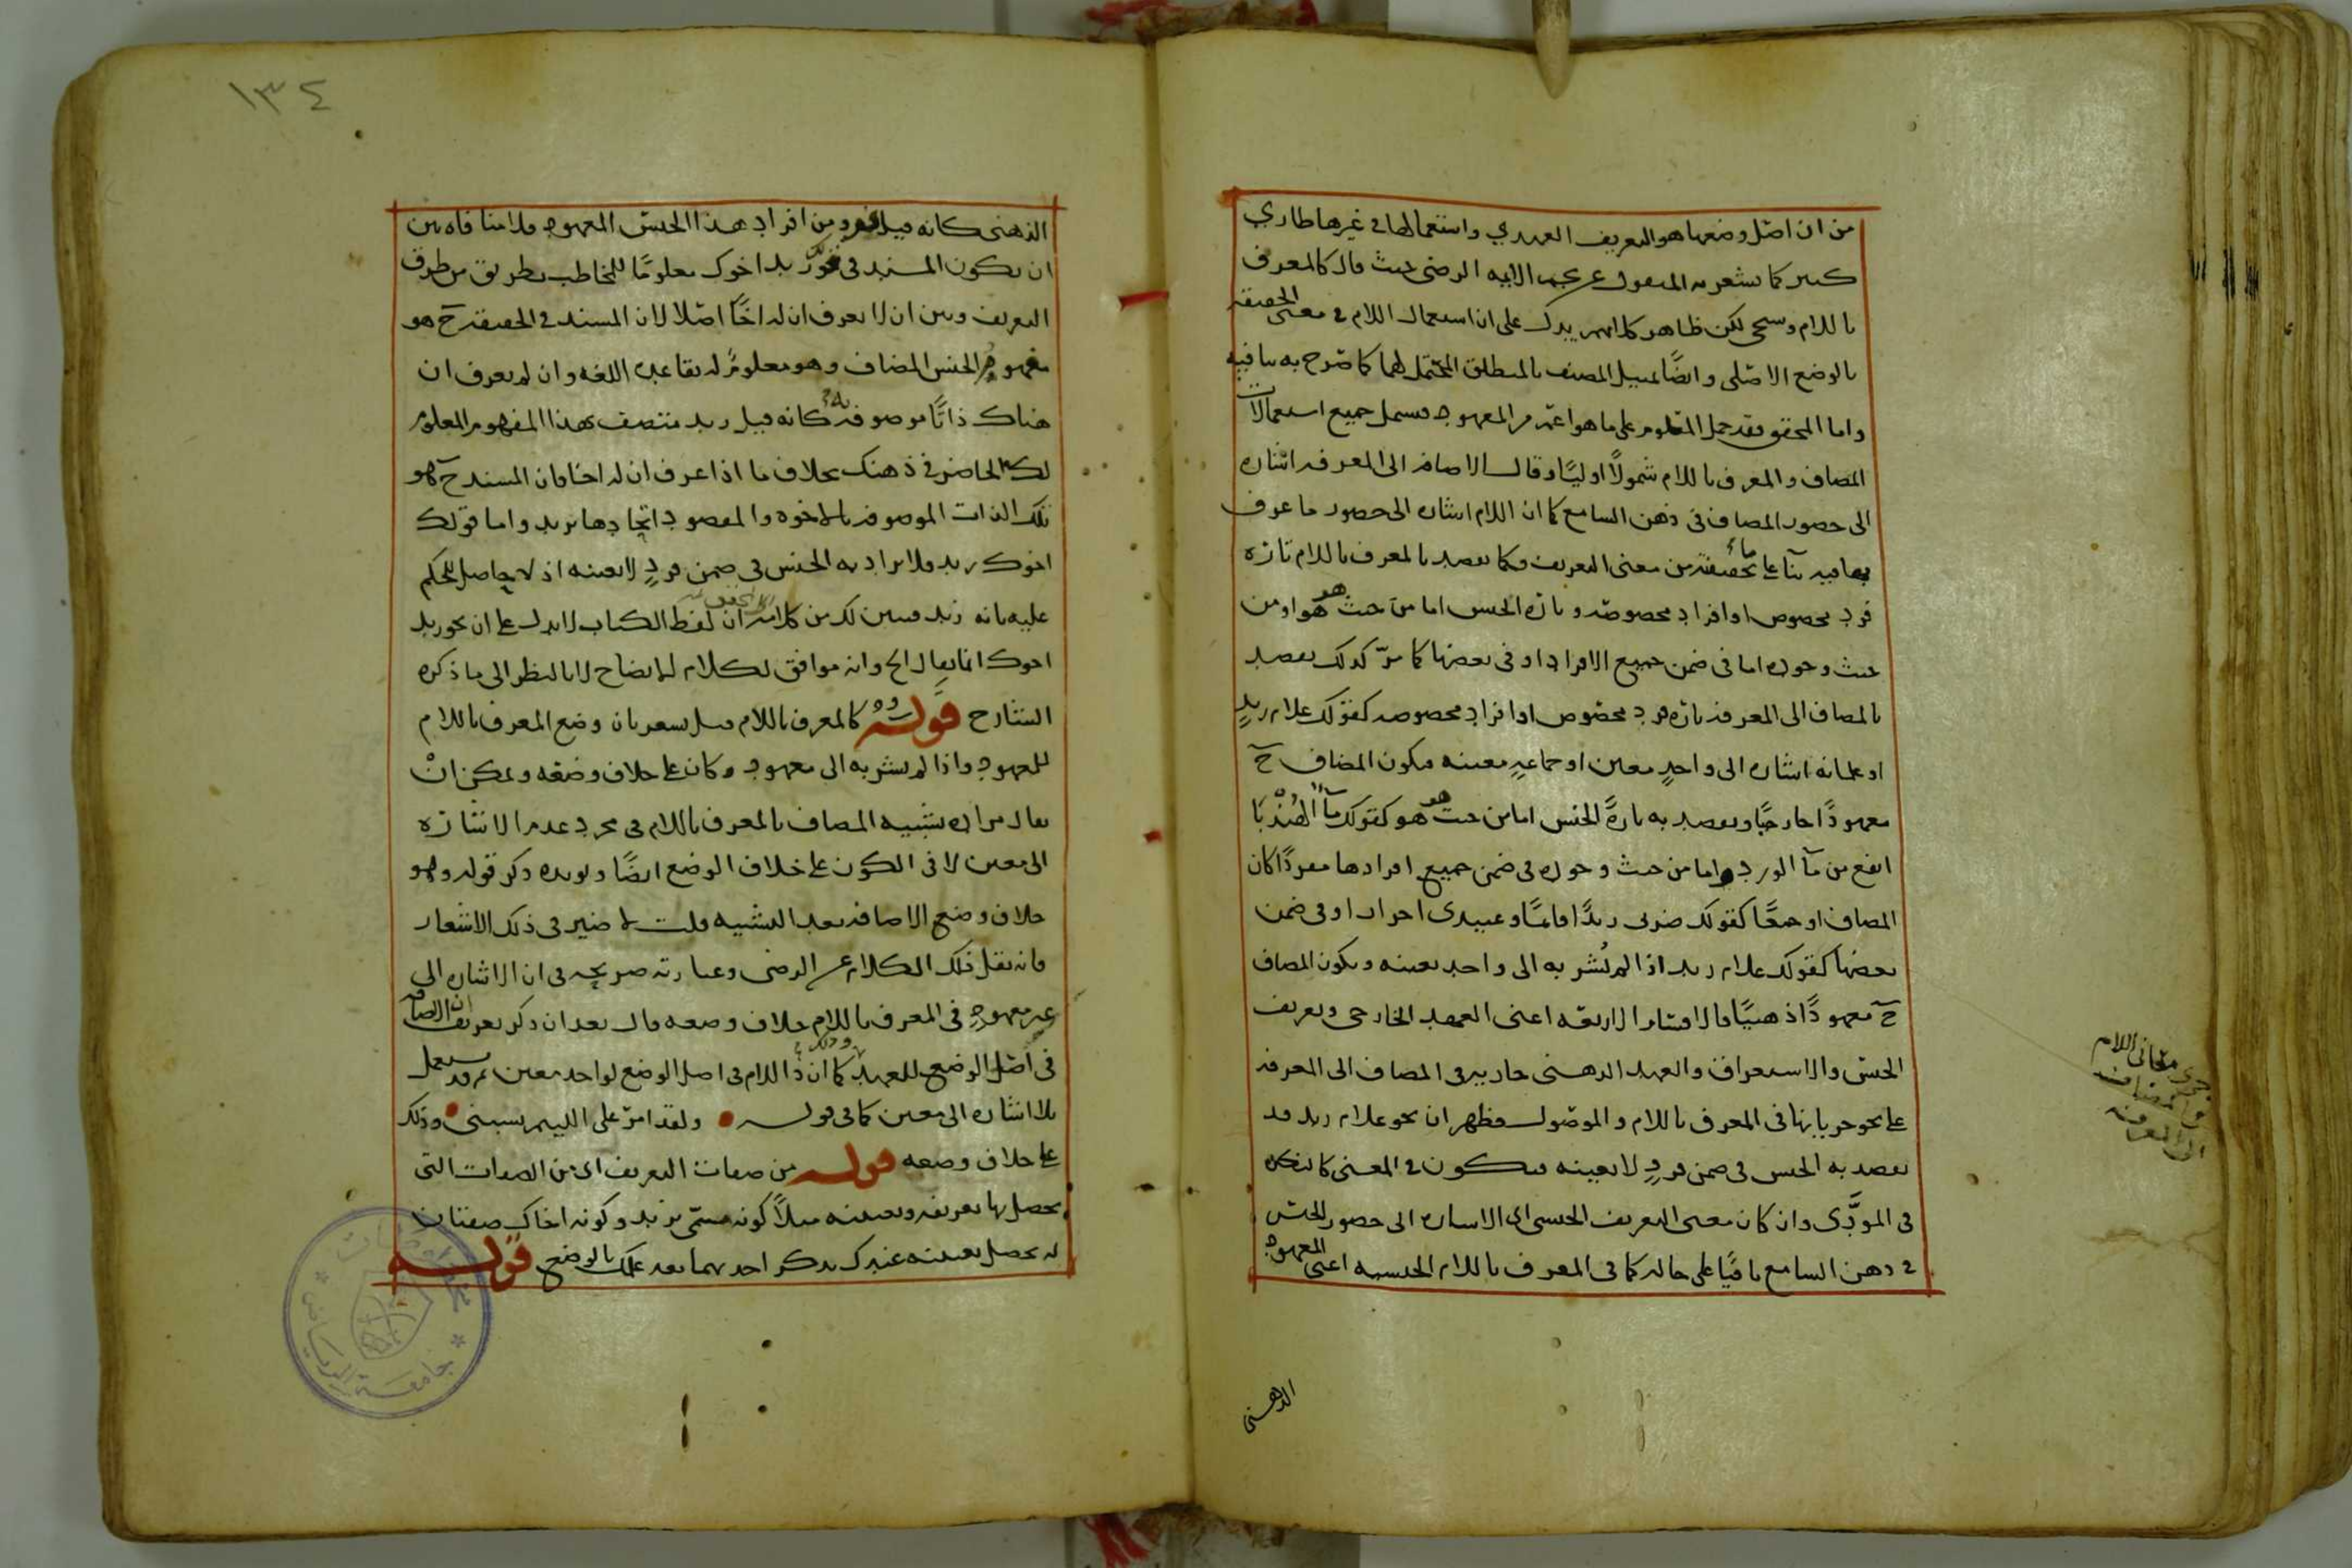 من ان اصل وضعها هو التعريف العهدي واستعمالها في غيرها طاري
كثير كما يشعر به المنقول عن نجم الايمه الرضي حيث قال كالمعرف
باللام وسيجي لكن ظاهر كلامهم يدل على ان استعمال اللام في معنى الحقيقة
بالوضع الاصلى وايضًا تمثيل المصنف بالمنطلق المحتمل لهما كما صرح به ينافيه
واما المحقق فقد حمل المعلوم على ما هو اعم من المعهود فيشمل جميع استعمالات
المضاف والمعرف باللام شمولًا اوليًا وقال الاضافة الى المعرفة اشاره
الى حضور المضاف فى ذهن السامع كما ان اللام اشاره الى حضور ما عرف
بها فيه بنآ على ما تحقيقته من معنى التعريف فكما يقصد بالمعرف باللام تارة
فرد مخصوص او افراد مخصوصة وتارة الجنس اما من حيث هو هو او من
حيث وجوده اما فى ضمن جميع الافراد او فى بعضها كما مر كذلك يقصد
بالمضاف الى المعرفة تارة فرد مخصوص او افراد مخصوصه كقولك غلام زيد
او غلمانه اشاره الى واحدٍ معين او جماعةٍ معينه فيكون المضاف ح
معهودًا خارجيًا ويقصد به تارةً الجنس اما من حيث هو هو كقولك مآ الهندبا
انفع من مآ الورد واما من حيث وجوده فى ضمن جميع افرادها مفردًا كان
المضاف او جمعًا كقولك ضربى زيدًا قائمًا وعبيدى احرار او فى ضمن
بعضها كقولك غلام زيد اذا لم تُشر به الى واحد بعينه ويكون المضاف
ح معهودًا ذهنيًا فالاقسام الاربعه اعنى العهد الخارجى وتعريف
الجنس والاستغراق والعهد الذهنى جاريه فى المضاف الى المعرفة
على نحو جريانها فى المعرف باللام والموصول فظهر ان نحو غلام زيد قد
يقصد به الجنس فى ضمن فردٍ لا بعينه فيكون فى المعنى كالنكره
فى المودَّى وان كان معنى التعريف الجنسى اى الاشاره الى حضور الجنس
فى ذهن السامع باقيًا على حاله كما فى المعرف باللام الجنسيه اعنى المعهود
الذهنى
جرى معانى اللام
فى المضاف
الى المعرفه
١٣٤
الذهنى كانه قيل فرد من افراد هذا الجنس المعهود فلا منافاه بين
ان يكون المسند فى نحو زيد اخوك معلومًا للمخاطب بطريق من طرق
التعريف وبين ان لا يعرف ان له اخًا اصلا لان المسند فى الحقيقة ح هو
مفهوم الجنس المضاف وهو معلوم له بقاعدة اللغه وان لم يعرف ان
هناك ذاتًا موصوفة به كانه قيل زيد متصف بهذا المفهوم المعلوم
لك الحاضر فى ذهنك بخلاف ما اذا عرف ان له اخا فان المسند ح هو
تلك الذات الموصوفة بالاخوه والمقصود اتحادها بزيد واما قولك
اخوك زيد فلا يراد به الجنس فى ضمن فردٍ لا بعينه اذ لا حاصل للحكم
عليه بانه زيد فتبين لك من كلامه ان لفظ الكتاب لا يدل على ان نحو زيد
اخوك انما يقال الخ وانه موافق لكلام الايضاح لا بالنظر الى ما ذكره
الشارح قوله كالمعرف باللام قيل يشعر بان وضع المعرف باللام
للمعهود واذا لم يشر به الى معهود وكان على خلاف وضعه ويمكن ان
يقال مراده تشبيه المضاف بالمعرف باللام فى مجرد عدم الاشارة
الى معين لا فى الكون على خلاف الوضع ايضًا ويويده ذكر قوله وهو
خلاف وضع الاضافة بعد التشبيه قلت لا ضير فى ذلك الاشعار
فانه نقل ذلك الكلام عن الرضى وعبارته صريحه فى ان الاشاره الى
غير معهودٍ فى المعرف باللام خلاف وضعه قال بعد ان ذكر تعريف ان الاضافة
فى اصل الوضع للعهد كما ان ذا اللام فى اصل الوضع لواحد معين ثم قد يستعمل
بلا اشاره الى معين كما فى قوله ولقد امر على اللئيم يسبنى وذلك
على خلاف وضعه قوله من صفات التعريف اى من الصفات التى
يحصل بها تعريفه وتعيينه مثلًا كونه مسمى بزيد وكونه اخاك صفتان
له يحصل تعيينه عندك بذكر احديهما بعد علمك بالوضع قوله
جامعة الرياض